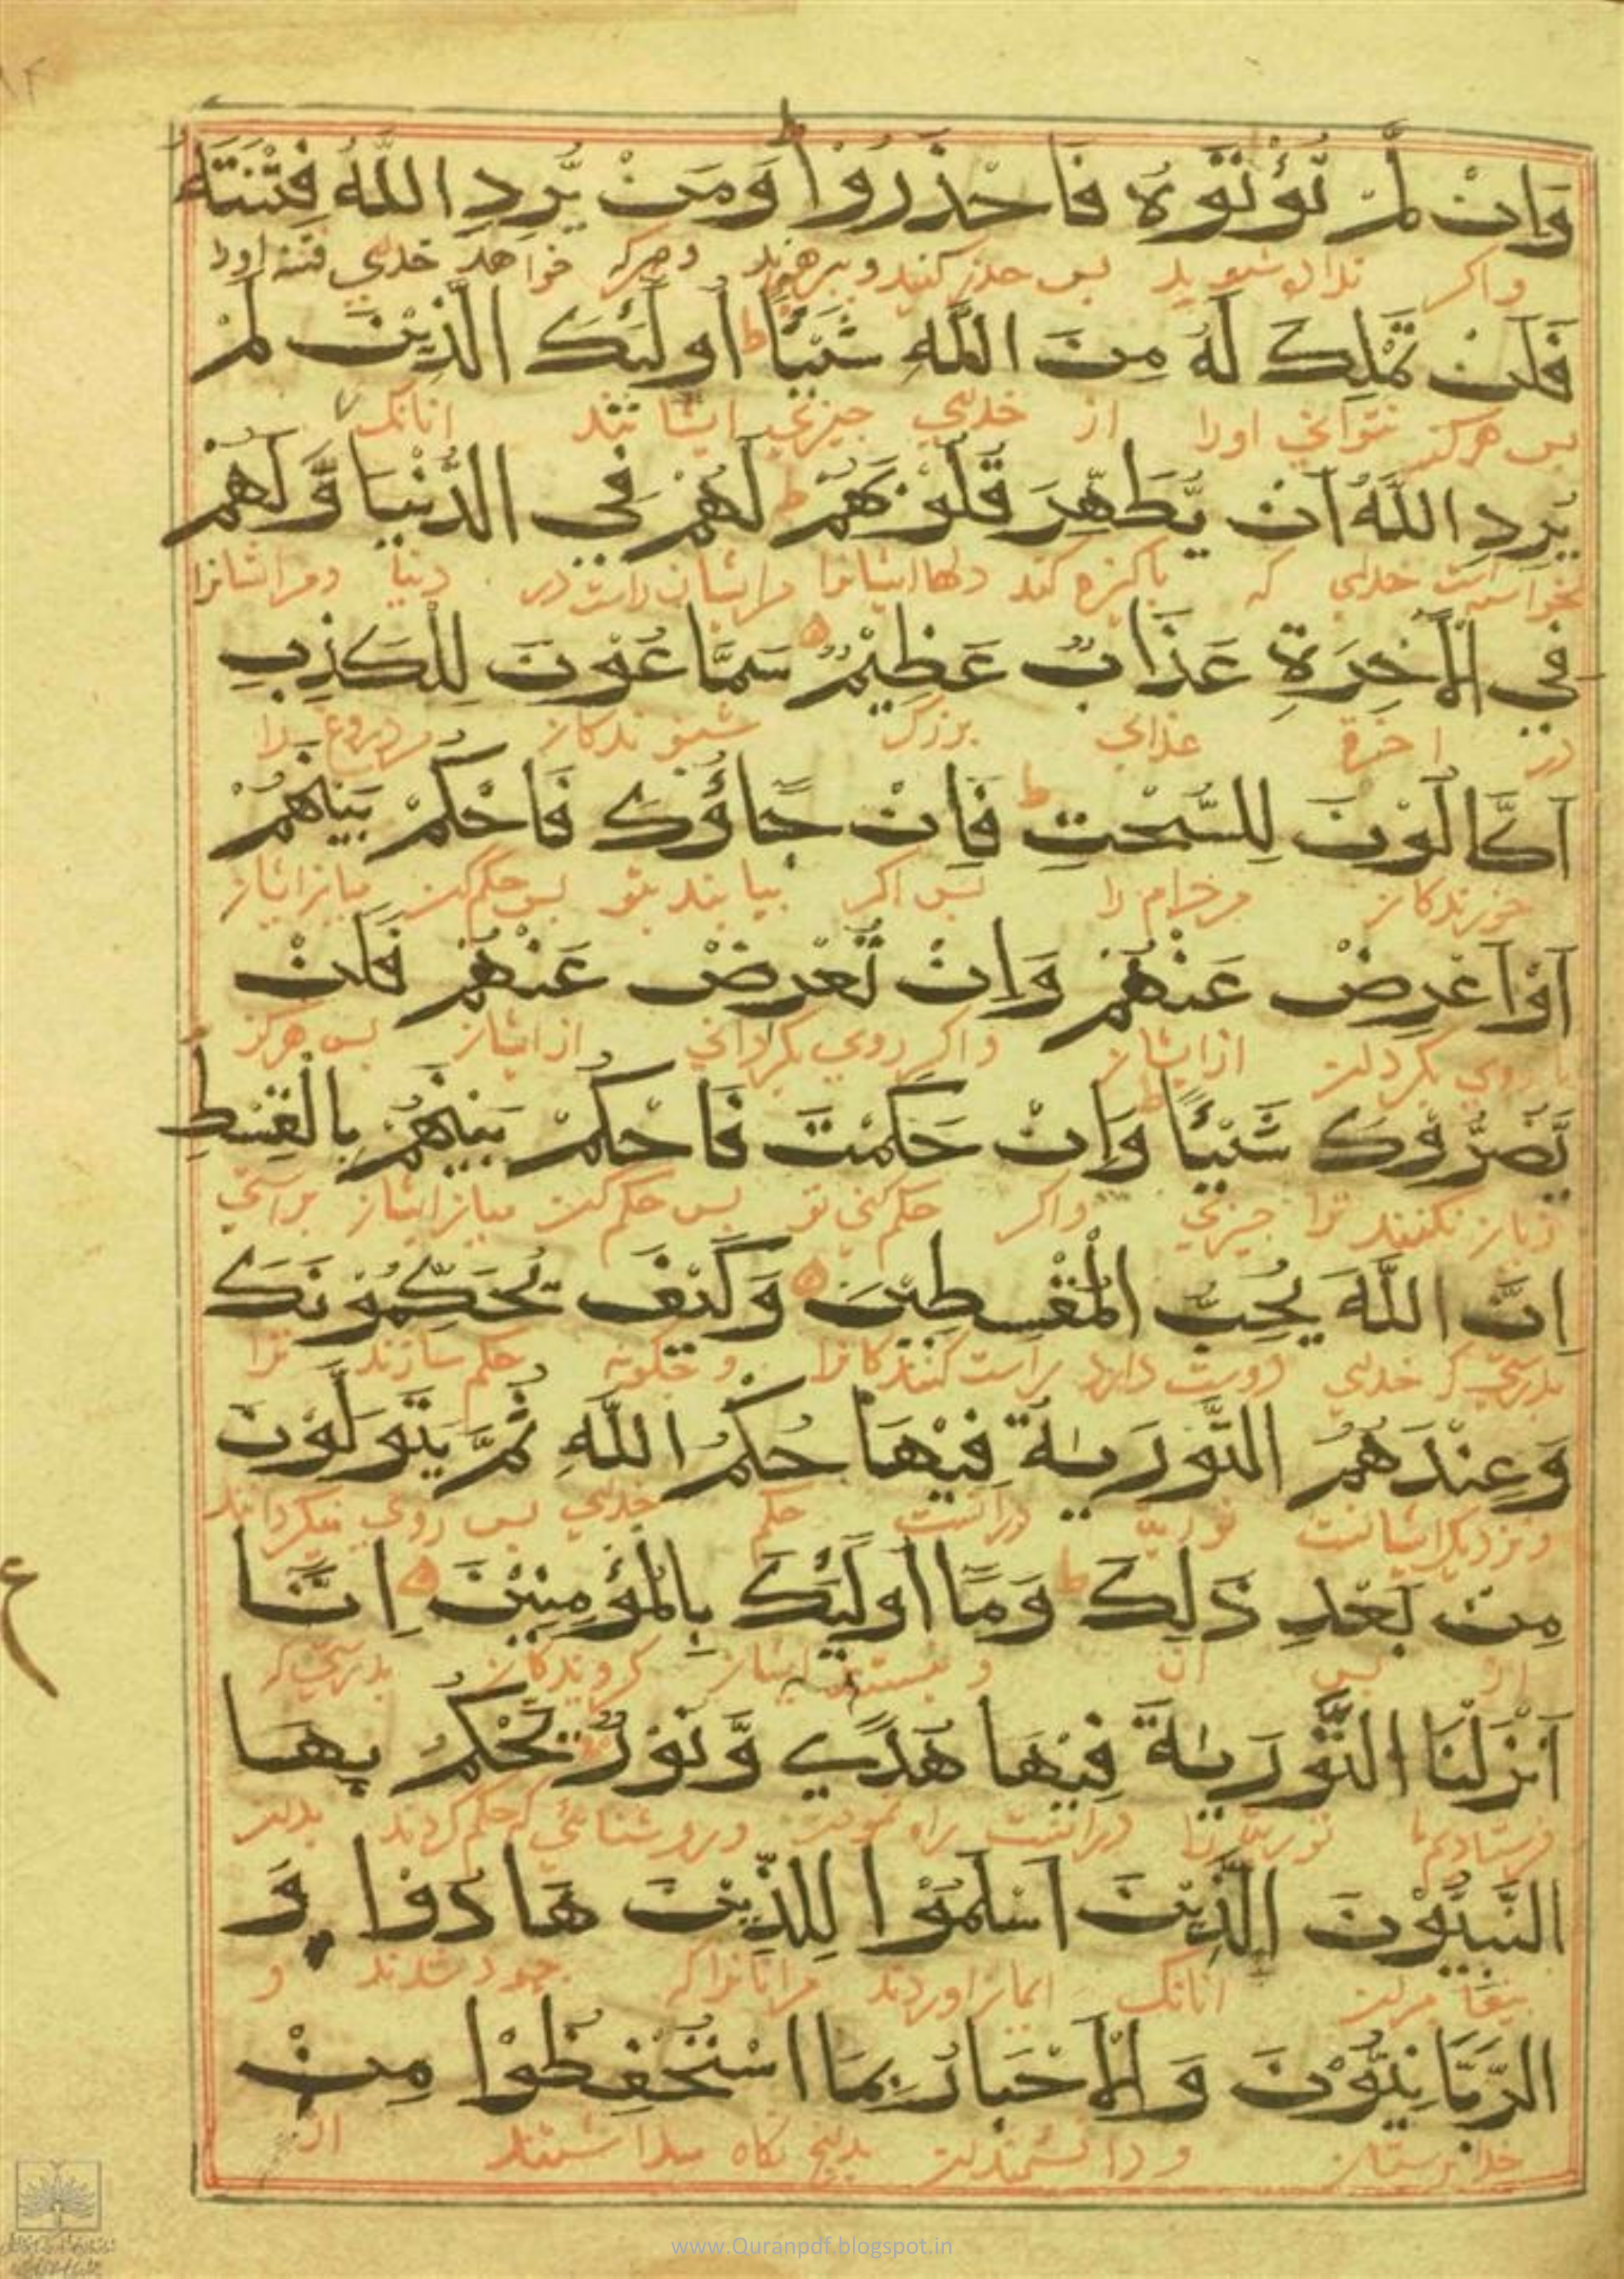 وَاِنْ لَّمْ تُؤْتَوْهُ فَاحْذَرُوْا ط وَمَنْ يُّرِدِ اللّٰهُ فِتْنَتَهٗ
واكر نداده شويد پس حذر كنيد و پرهيزيد و هركه خواهد خداي فتنه اورا
فَلَنْ تَمْلِكَ لَهٗ مِنَ اللّٰهِ شَيْئًا ط اُولٰٓئِكَ الَّذِيْنَ لَمْ
پس هركز نتواني اورا از خداي چيزي ايشانند انانك
يُرِدِ اللّٰهُ اَنْ يُّطَهِّرَ قُلُوْبَهُمْ ط لَهُمْ فِي الدُّنْيَا وَّلَهُمْ
نخواسته است خداي كه پاكيزه كند دلهاايشانرا مرايشان راست در دنيا ومرايشانرا
فِي الْاٰخِرَةِ عَذَابٌ عَظِيْمٌ سَمّٰعُوْنَ لِلْكَذِبِ
در اخرة عذابي بزرك شنوندكان مردروغ را
اَكّٰالُوْنَ لِلسُّحْتِ ط فَاِنْ جَآؤُكَ فَاحْكُمْ بَيْنَهُمْ
خورندكان مرحرام را پس اكر بيايند بتو پس حكم كن ميان ايشان
اَوْ اَعْرِضْ عَنْهُمْ وَاِنْ تُعْرِضْ عَنْهُمْ فَلَنْ
يا روي بكردان ازايشان واكر روي بكرداني ازايشان پس هركز
يَّضُرُّوْكَ شَيْئًا ط وَاِنْ حَكَمْتَ فَاحْكُمْ بَيْنَهُمْ بِالْقِسْطِ
زيان نكنند ترا چيزي واكر حكم كني تو پس حكم كن ميان ايشان براستي
اِنَّ اللّٰهَ يُحِبُّ الْمُقْسِطِيْنَ وَكَيْفَ يُحَكِّمُوْنَكَ
بدرستي كه خداي دوست دارد راست كنندكانرا و چكونه حكم سازند ترا
وَعِنْدَهُمُ التَّوْرٰىةُ فِيْهَا حُكْمُ اللّٰهِ ثُمَّ يَتَوَلَّوْنَ
ونزديك ايشانست تورية درانست حكم خداي پس روي ميكردانند
مِنْ بَعْدِ ذٰلِكَ ط وَمَآ اُولٰٓئِكَ بِالْمُؤْمِنِيْنَ اِنَّآ
از پس ان و نيستند ايشان كروندكان بدرستي كه
ع
اَنْزَلْنَا التَّوْرٰىةَ فِيْهَا هُدًي وَّنُوْرٌ يَحْكُمُ بِهَا
فرستاديم ما تورية را درانست راه نمودن و روشنائي كه حكم كردند بدان
النَّبِيُّوْنَ الَّذِيْنَ اَسْلَمُوْا لِلَّذِيْنَ هَادُوْا وَ
پيغامبران انانك ايمان اوردند مرانانراكه جهود شدند و
الرَّبَّانِيُّوْنَ وَالْاَحْبَارُ بِمَا اسْتُحْفِظُوْا مِنْ
خداپرستان و دانشمندان بدانچ نكاه داشتند از
www.Quranpdf.blogspot.in